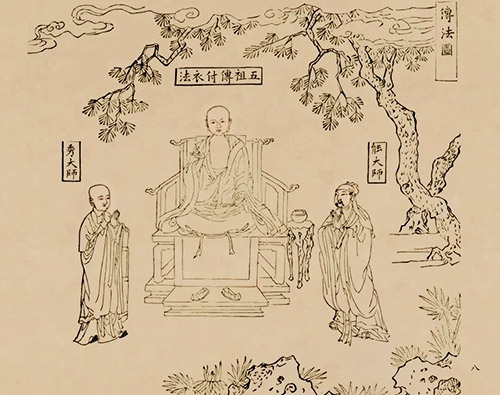 傳法圖
五祖傳付衣法
能大師
秀大師
八